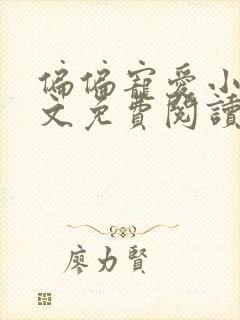 偏偏寵愛小
文免費閱讀
廖力賢